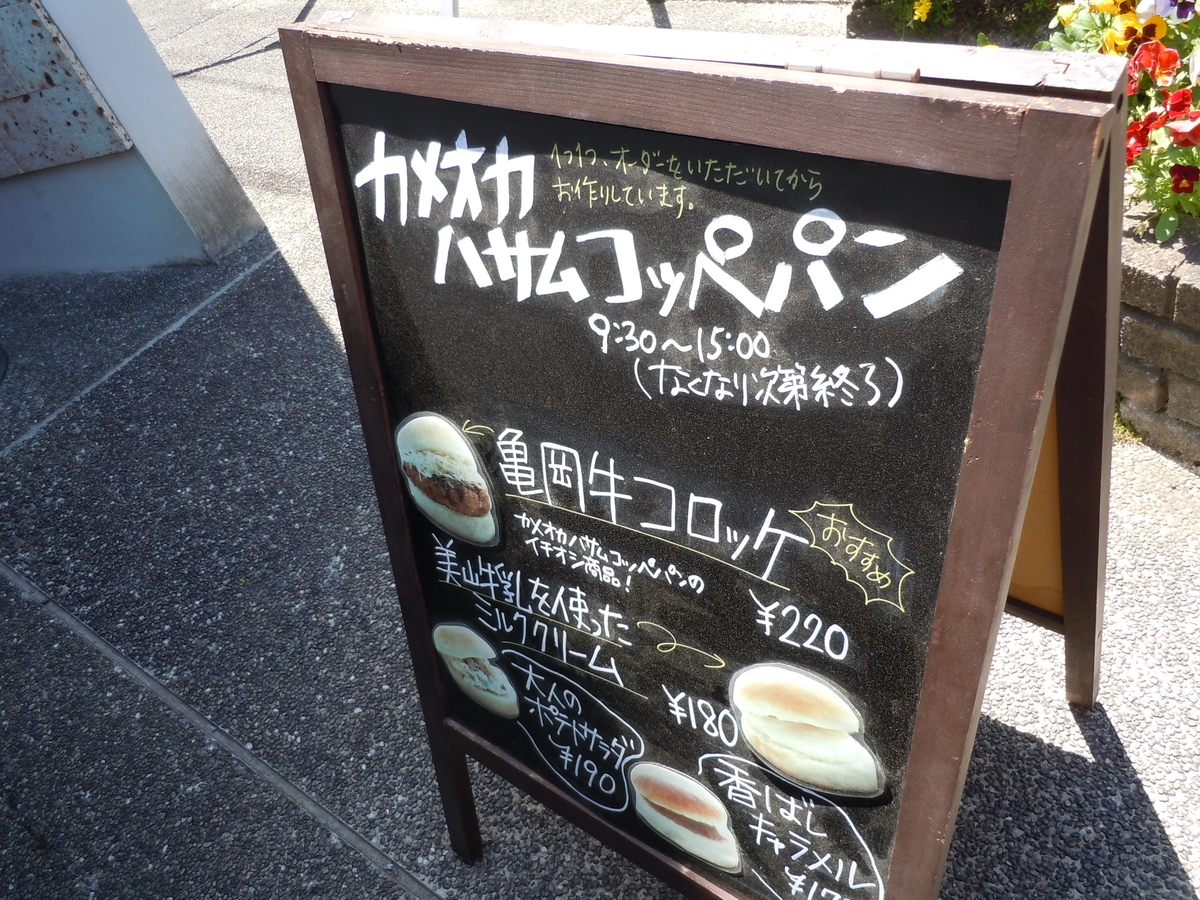 カメオカ
1つ1つ、オーダーをいただいてから
お作りしています。
ハサムコッペパン
9:30〜15:00
(なくなり次第終了)
亀岡牛コロッケ
おすすめ
カメオカハサムコッペパンの
イチオシ商品!
¥220
美山牛乳を使った
ミルククリーム
¥180
大人の
ポテトサラダ
¥190
香ばし
キャラメル